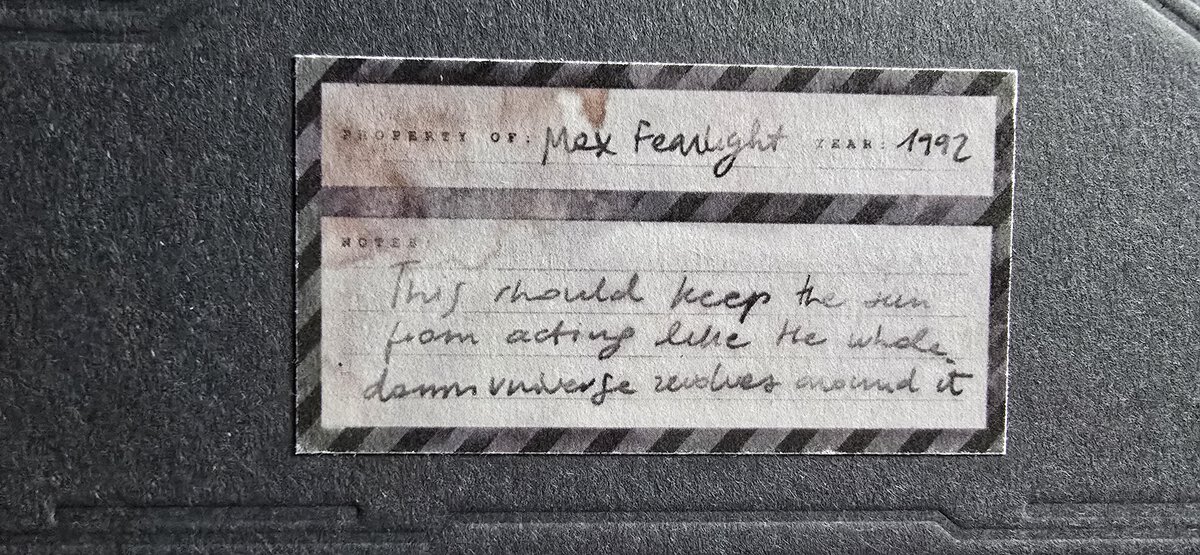 PROPERTY OF: Max Fearlight YEAR: 1992
NOTES:
This should keep the sun
from acting like the whole
damn universe revolves around it